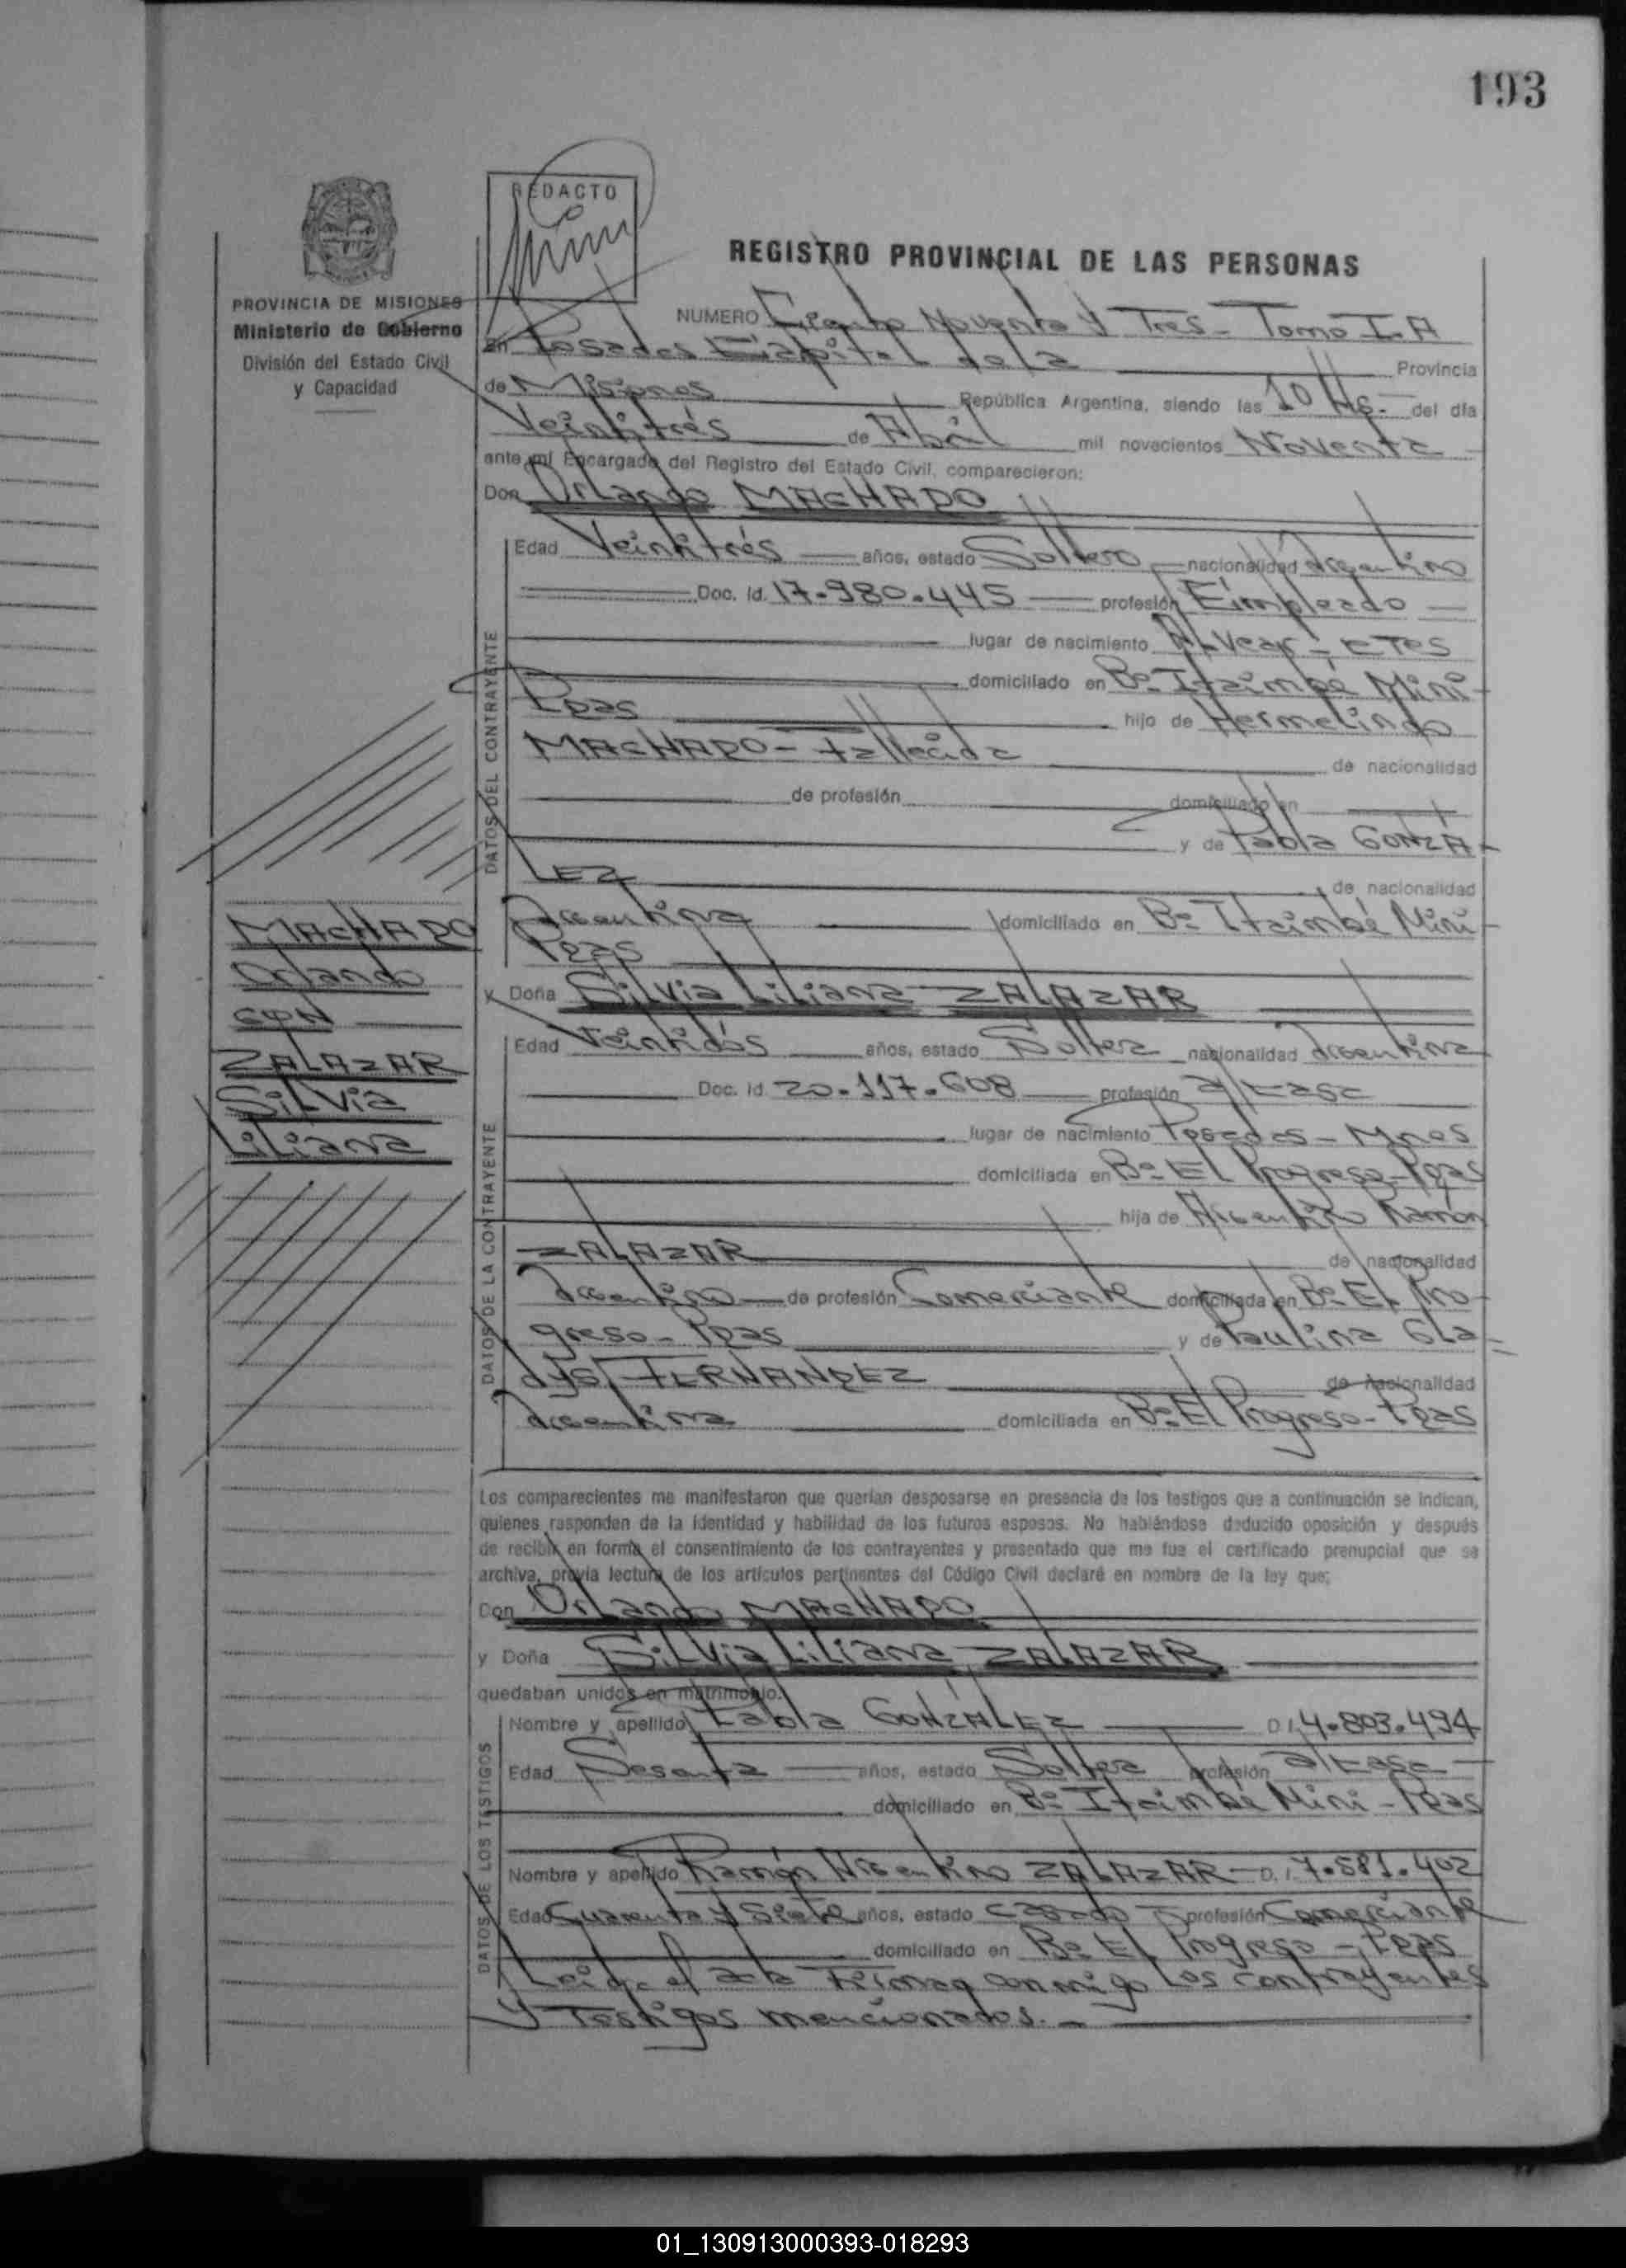 193
REDACTO
REGISTRO PROVINCIAL DE LAS PERSONAS
PROVINCIA DE MISIONES
Ministerio de Gobierno
División del Estado Civil
y Capacidad
NUMERO Ciento Noventa y Tres - Tomo I-A
En Posadas Capital de la Provincia
de Misiones República Argentina, siendo las 10 Hs. del día
Veintitrés de Abril mil novecientos Noventa
ante mí Encargado del Registro del Estado Civil, comparecieron:
Don Orlando MACHADO
DATOS DEL CONTRAYENTE
Edad Veintitrés años, estado Soltero nacionalidad Argentino
Doc. Id. 17.980.445 profesión Empleado
lugar de nacimiento Alvear - CTES
domiciliado en Bº Itaimbé Mini -
Pdas hijo de Hermelindo
MACHADO - Fallecido de nacionalidad
de profesión domiciliado en
y de Pabla GONZA-
LEZ de nacionalidad
Argentina domiciliado en Bº Itaimbé Mini -
Pdas
MACHADO
Orlando
CON
ZALAZAR
Silvia
Liliana
y Doña Silvia Liliana ZALAZAR
DATOS DE LA CONTRAYENTE
Edad Veintidós años, estado Soltera nacionalidad Argentina
Doc. Id. 20.117.608 profesión a/casa
lugar de nacimiento Posadas - Mnes
domiciliada en Bº El Progreso - Pdas
hija de Argentino Ramón
ZALAZAR de nacionalidad
Argentino de profesión Comerciante domiciliada en Bº El Pro-
greso - Pdas y de Paulina Gla-
dys FERNANDEZ de nacionalidad
Argentina domiciliada en Bº El Progreso - Pdas
Los comparecientes me manifestaron que querían desposarse en presencia de los testigos que a continuación se indican,
quienes responden de la identidad y habilidad de los futuros esposos. No habiéndose deducido oposición y después
de recibir en forma el consentimiento de los contrayentes y presentado que me fue el certificado prenupcial que se
archiva, previa lectura de los artículos pertinentes del Código Civil declaré en nombre de la ley que:
Don Orlando MACHADO
y Doña Silvia Liliana ZALAZAR
quedaban unidos en matrimonio.
DATOS DE LOS TESTIGOS
Nombre y apellido Pabla GONZALEZ D.I. 4.803.494
Edad Sesenta años, estado Soltera profesión a/casa
domiciliado en Bº Itaimbé Mini - Pdas
Nombre y apellido Ramón Argentino ZALAZAR - D.I. 7.581.402
Edad Cuarenta y Siete años, estado casado profesión Comerciante
domiciliado en Bº El Progreso - Pdas
Leída el acta Firman conmigo Los contrayentes
y Testigos mencionados. -
01_130913000393-018293